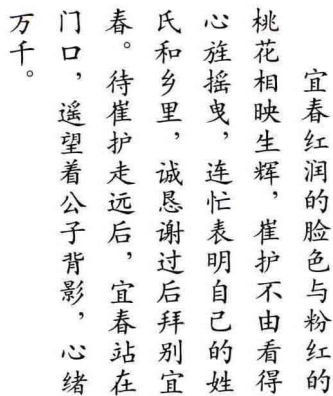 宜春红润的脸色与粉红的
桃花相映生辉，崔护不由看得
心旌摇曳，连忙表明自己的姓
氏和乡里，诚恳谢过后拜别宜
春。待崔护走远后，宜春站在
门口，遥望着公子背影，心绪
万千。